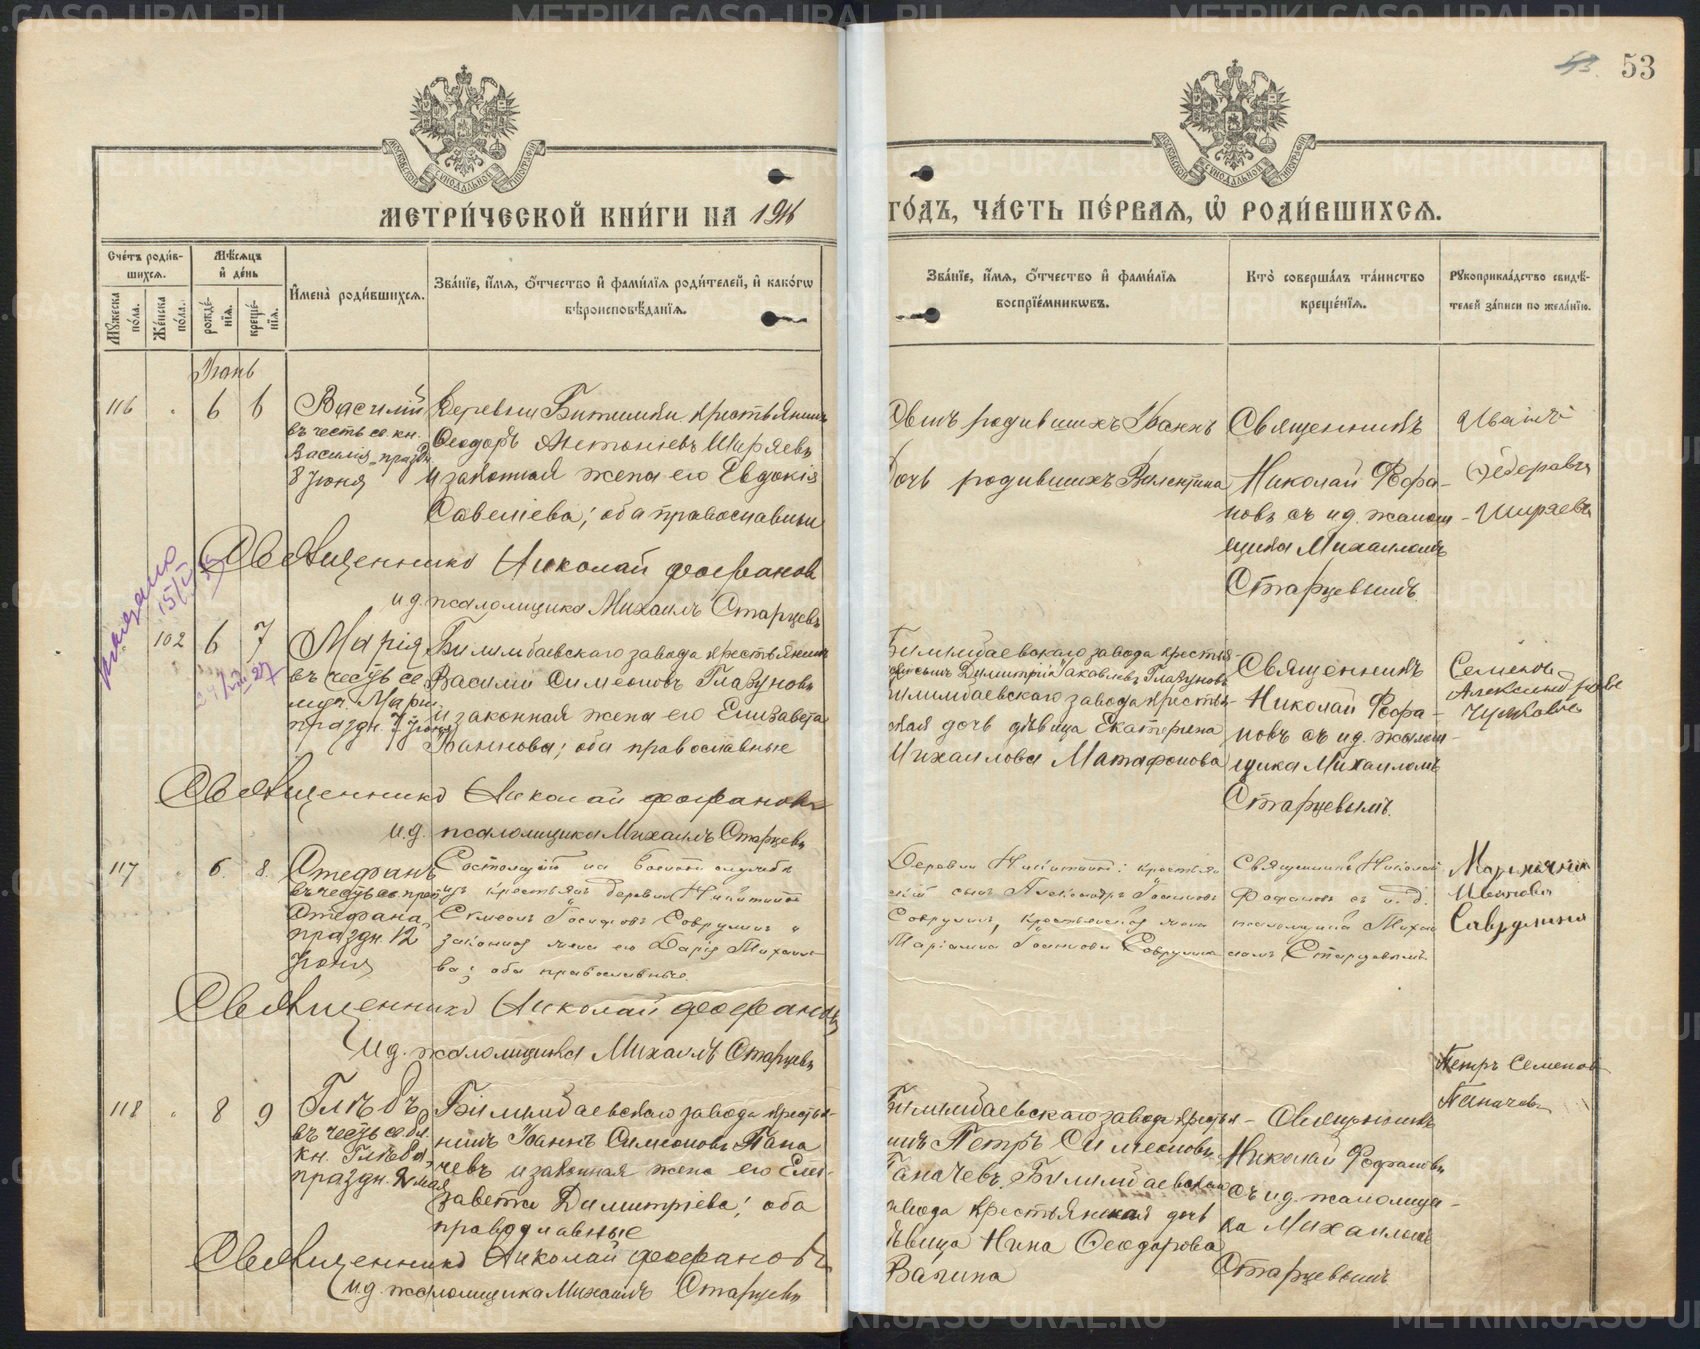 53
МОСКОВСКОЙ СѴНОДАЛЬНОЙ ТИПОГРАФІИ
МОСКОВСКОЙ СѴНОДАЛЬНОЙ ТИПОГРАФІИ
МЕТРИ́ЧЕСКОЙ КНИ́ГИ НА
ГО́ДЪ, ЧА́СТЬ ПЕ́РВАѦ, Ѡ҆ РОДИ́ВШИХСѦ.
Сче́тъ роди́в-
шихсѧ.
Мꙋ́жеска по́ла.
Же́нска по́ла.
Мѣ́сѧцъ
и҆ де́нь
рожде́-
нїѧ.
креще́-
нїѧ.
И҆мена̀ роди́вшихсѧ.
Зва́нїе, и҆́мѧ, ѻ҆́тчество и҆ фами́лїѧ роди́телей, и҆ како́гѡ
вѣроисповѣ́данїѧ.
Зва́нїе, и҆́мѧ, ѻ҆́тчество и҆ фами́лїѧ
воспрїе́мникѡвъ.
Кто̀ соверша́лъ та́инство
креще́нїѧ.
Рꙋкоприкла́дство свидѣ́-
телей за́писи по жела́нїю.
Іюнь
116
6
6
Василій
въ честь св. кн.
Василія, праздн.
8 Іюня
Деревни Битимки крестьянинъ
Ѳеодоръ Антоніевъ Ширяевъ
и законная жена его Евдокія
Савеліева; оба православные
Сынъ родившихъ Іоаннъ
Дочь родившихъ Валентина
Священникъ
Николай Ѳеофа-
новъ съ и.д. псалом-
щика Михаиломъ
Старцевымъ.
Иванъ
Федоровъ
Ширяевъ
Священникъ Николай Ѳеофановъ
и.д. псаломщика Михаилъ Старцевъ
102
6
7
Марія
въ честь св.
мц. Маріи
праздн. 7 Іюня
Билимбаевскаго завода крестьянинъ
Василій Симеоновъ Глазуновъ
и законная жена его Елизавета
Іоаннова; оба православные
Билимбаевскаго завода крестья-
Димитрій Іаковлевъ Глазуновъ
Билимбаевскаго завода крестьян-
ская дочь дѣвица Екатерина
Михаилова Матафонова
Священникъ
Николай Ѳеофа-
новъ съ и.д. псалом-
щика Михаиломъ
Старцевымъ.
Семенъ
Священникъ Николай Ѳеофановъ
и.д. псаломщика Михаилъ Старцевъ
117
6.
8.
Стефанъ
въ честь св. преп.
Стефана,
праздн. 12
Іюня
Состоящій на военной службѣ
изъ крестьянъ деревни
Симеонъ Іосифовъ Саврулинъ и
законная жена его Дарія Михаило-
ва; оба православные
сынъ Александръ
Саврулинъ, крестьянская жена
Маріамна Іоаннова Саврулина
Священникъ Николай
Ѳеофановъ съ и. д.
псаломщика Михаи-
ломъ Старцевымъ.
Саврулина
Священникъ Николай Ѳеофановъ
и.д. псаломщика Михаилъ Старцевъ
118
8
9
Глѣбъ
въ честь св. бл.
кн. Глѣба,
праздн. 2 мая
Билимбаевскаго завода крестья-
нинъ Іоаннъ Симеоновъ Пана-
чевъ и законная жена его Ели-
завета Димитріева; оба
православные
Билимбаевскаго завода крестья-
нинъ Петръ Симеоновъ
Паначевъ, Билимбаевскаго
завода крестьянская дочь
дѣвица Нина Ѳеодорова
Вагина
Священникъ
Николай Ѳеофановъ
съ и.д. псаломщи-
ка Михаиломъ
Старцевымъ
Петръ Семеновъ
Паначевъ
Священникъ Николай Ѳеофановъ
и.д. псаломщика Михаилъ Старцевъ
METRIKI.GASO-URAL.RU